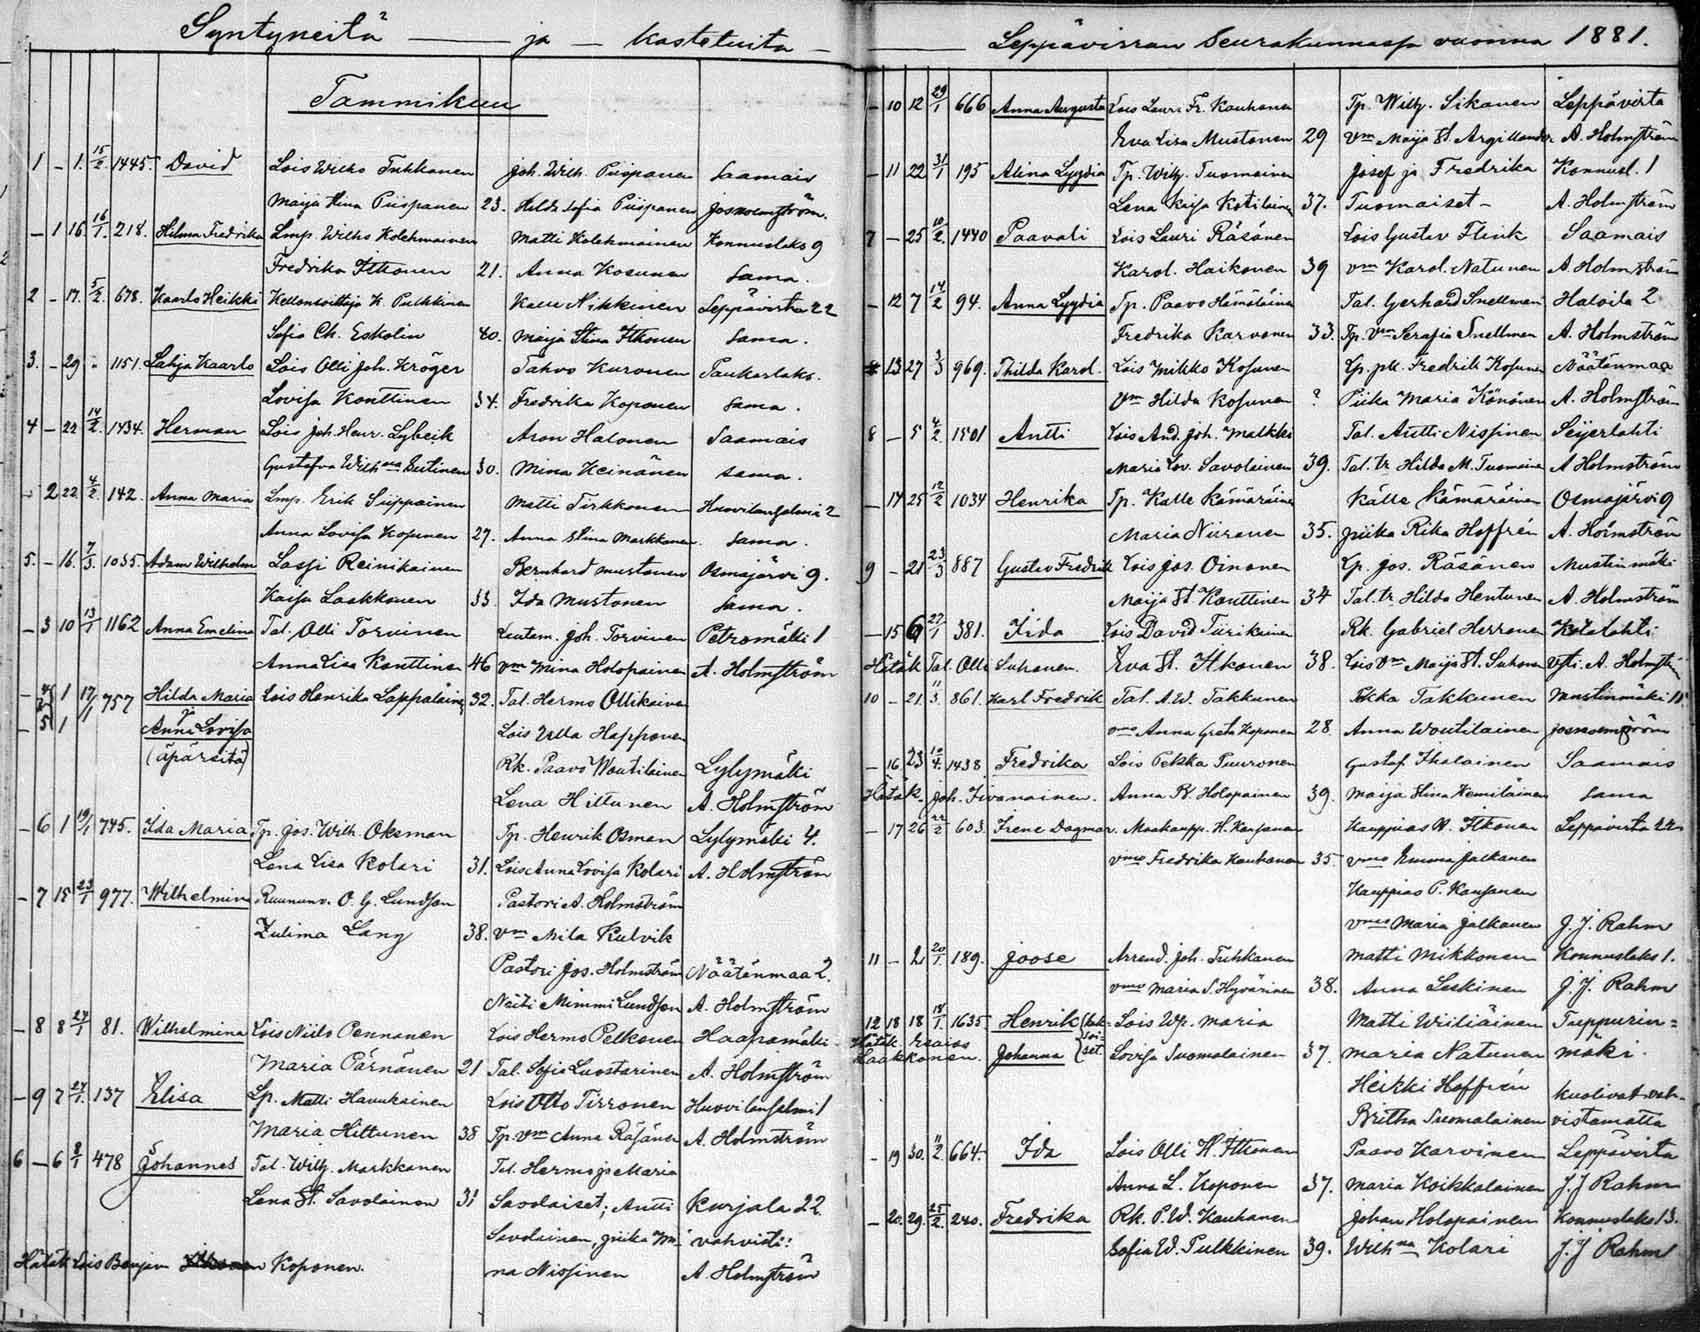 Syntyneitä — ja — kastetuita —
Tammikuu
1 – 1. 15/2 1445. David Lois Wilho Tuhkanen Joh. Wilh. Piispanen Saamais
Maija Stina Piispanen 23. Hilda Sofia Piispanen Jos Holmström.
– 1 16. 16/1. 218. Hilma Fredrika Lmp. Wilho Kolehmainen Matti Kolehmainen Konnuslaks 9
Fredrika Itkonen 21. Anna Kosunen Sama.
2 – 17. 5/2. 678. Kaarlo Heikki Kellonsoittaja K. Pulkkinen Kalle Nikkinen Leppävirta 22
Sofia Ch. Eskolin 40. Maija Stina Itkonen Sama.
3. – 29 " 1151. Lahja Kaarlo Lois Olli Joh. Kröger Tahvo Kuronen Paukarlaks.
Lovisa Konttinen 34. Fredrika Koponen Sama.
4 – 22 14/2. 1434. Herman Lois Joh. Henr. Lybeck Aron Halonen Saamais
Gustafva Wilhna Tuutinen 30. Mina Heinänen sama.
– 2 22. 4/2. 142. Anna Maria Lmp. Erik Suppainen Matti Tirkkonen Huovilansalmi 2
Anna Lovisa Koponen 27. Anna Stina Markkanen Sama.
5. – 16. 7/3. 1035. Adam Wilhelm Lassi Reinikainen Bernhard Mustonen Osmajärvi 9.
Kaisa Laakkonen 33. Ida Mustonen Sama.
– 3 10 13/1 1162 Anna Emelina Tal. Olli Torvinen Leutem. Joh. Torvinen Petromäki 1
Anna Lisa Konttinen 46 vm Mina Holopainen A. Holmström
– 4 1 17/1 757 Hilda Maria Lois Henrika Lappalainen 32. Tal. Hermo Ollikainen
– 5 1 ja Anna Lovisa Lois Ulla Happonen
(äpäräitä) Rk. Paavo Woutilainen Lylymäki
Lena Hiltunen A. Holmström
– 6 1 19/1 745. Ida Maria Tp. Jos. Wilh. Oksman Tp. Henrik Osman Lylymäki 4.
Lena Lisa Kolari 31. Lois Anna Lovisa Kolari A. Holmström
– 7 15 23/1 977. Wilhelmina Ruununv. O. G. Lundson Pastori A. Holmström
Zulima Lang 38. vm Mila Kulvik
Pastori Jos. Holmström Näätänmaa 2.
Neiti Mimmi Lundson A. Holmström
– 8 8 27/1 81. Wilhelmina Lois Niilo Pennanen Lois Hermo Pelkonen Haapamäki
Maria Pärnänen 21 Tal. Sofia Luostarinen A. Holmström
– 9 7 27/1. 137 Elisa Lp. Matti Havukainen Lois Otto Tirronen Huovilansalmi 1
Maria Hiltunen 38 Tp. vm Anna Räsänen A. Holmström
6 – 6 8/1 478 Johannes Tal. Wilh. Markkanen Tal. Hermo ja Maria
Lena St. Savolainen 31 Savolaiset; Antti Kurjala 22
Savolainen, piika Mi- vahvisti:
Hätäk. Lois Benjam Koponen. na Nissinen A. Holmström
Leppävirran Seurakunnassa vuonna 1881.
– 10 12 29/1 666 Anna Augusta Lois Lauri Fr. Kauhanen Tp. Wilh. Sikanen Leppävirta
Eva Lisa Mustonen 29 vm Maija St. Argillander A. Holmström
– 11 22 31/1 195 Alina Lyydia Tp. Wilh. Tuomainen Josef ja Fredrika Konnusl. 1
Lena Kaisa Kotilainen 37. Tuomaiset – A. Holmström
7 – 25 10/2. 1440 Paavali Lois Lauri Räsänen Lois Gustav Flink Saamais
Karol. Haikonen 39 vm Karol. Natunen A. Holmström
– 12 7 14/2 94. Anna Lyydia Tp. Paavo Hämäläinen Tal. Gerhard Snellman Haloila 2
Fredrika Karvonen 33. Tp. vm Serafia Snellman A. Holmström
– 13 27 3/3 969. Thilda Karol. Lois Mikko Kosunen Lp. pk. Fredrik Kosunen Näätänmaa
vm Hilda Kosunen ? Piika Maria Könönen A. Holmström
8 – 5 4/2. 1501 Antti Lois And. Joh. Malkki Tal. Antti Nissinen Seijerlahti
Maria Lov. Savolainen 39. Tal. tr. Hilda M. Tuomainen A Holmström
– 14 25 12/2 1034 Henrika Tp. Kalle Kämäräinen Kalle Kämäräinen Osmajärvi 9
Maria Niiranen 35. piika Rika Hoffrén A. Holmström
9 – 21 23/3 887 Gustav Fredrik Lois Jos. Oinonen Lp. Jos. Räsänen Mustinmäki
Maija St. Konttinen 34 Tal. tr. Hilda Hentunen A. Holmström
– 15 6 27/1 381. Iida Lois David Tiirikainen Rk. Gabriel Herranen Kotalahti
Hätäk Tal. Olli Suhonen. Eva St. Itkonen 38. Lois vm Maija St. Suhonen vsti. A. Holmström
10 – 21. 11/3. 861. Karl Fredrik Tal. A. W. Takkunen Pekka Takkunen Mustinmäki 15
vmo Anna Greta Koponen 28. Anna Woutilainen Jos Holmström
– 16 23 10/4. 1438. Fredrika Lois Pekka Tuuronen Gustaf Ikalainen Saamais
Hätäk. Joh. Iivanainen. Anna K. Holopainen 39. Maija Stina Hemiläinen Sama
– 17 26 22/2 603. Irene Dagmar. Maakaupp. H. Kansanen Kauppias W. Itkonen Leppävirta 22
vmo Fredrika Kauhanen 35 vmo Emma Jalkanen
Kauppias P. Kansanen
vmo Maria Jalkanen J. J. Rahm
11 – 2 20/1. 189. Joose Arrend. Joh. Tuhkanen Matti Mikkonen Konnuslaks 1.
vmo Maria S. Hyvärinen 38. Anna Leskinen J. J. Rahm
12 18 18 18/1. 1635 Henrik (kak- Lois Wp. Maria Matti Wiitiäinen Tuppurin=
Hätäk. Esaias Laakkonen. Johanna soi- set. Lovisa Suomalainen 37. Maria Natunen mäki.
Heikki Hoffrén kuolivat vah-
Britha Suomalainen vistamatta
– 19 30. 11/2. 664 Ida Lois Olli H. Itkonen Paavo Karvinen Leppävirta
Anna L. Koponen 37. Maria Koikkalainen J. J Rahm
– 20. 29. 25/2. 240. Fredrika Rk. P. W. Kauhanen Johan Holopainen Konnuslaks 13.
Sofia W. Pulkkinen 39. Wilhna Kolari J. J Rahm